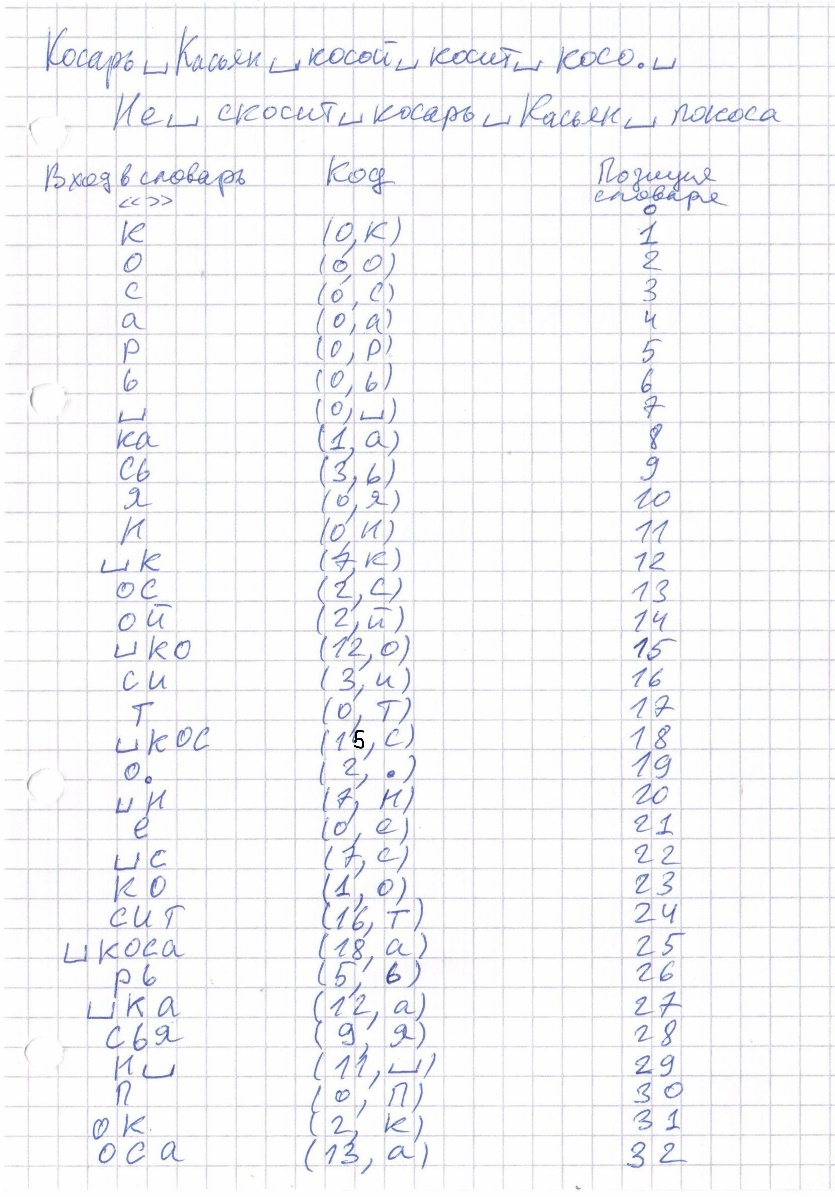 Косарь␣Касьян␣косой␣косит␣косо.␣
Не␣скосит␣косарь␣Касьян␣покоса
Вход в словарь Код Позиция
словаре
«» 0
к (0,к) 1
о (0,о) 2
с (0,с) 3
а (0,а) 4
р (0,р) 5
ь (0,ь) 6
␣ (0,␣) 7
ка (1,а) 8
сь (3,ь) 9
я (0,я) 10
н (0,н) 11
␣к (7,к) 12
ос (2,с) 13
ой (2,й) 14
␣ко (12,о) 15
си (3,и) 16
т (0,т) 17
␣кос (15,с) 18
о. (2,.) 19
␣н (7,н) 20
е (0,е) 21
␣с (7,с) 22
ко (1,о) 23
сит (16,т) 24
␣коса (18,а) 25
рь (5,ь) 26
␣ка (12,а) 27
сья (9,я) 28
н␣ (11,␣) 29
п (0,п) 30
ок (2,к) 31
оса (13,а) 32